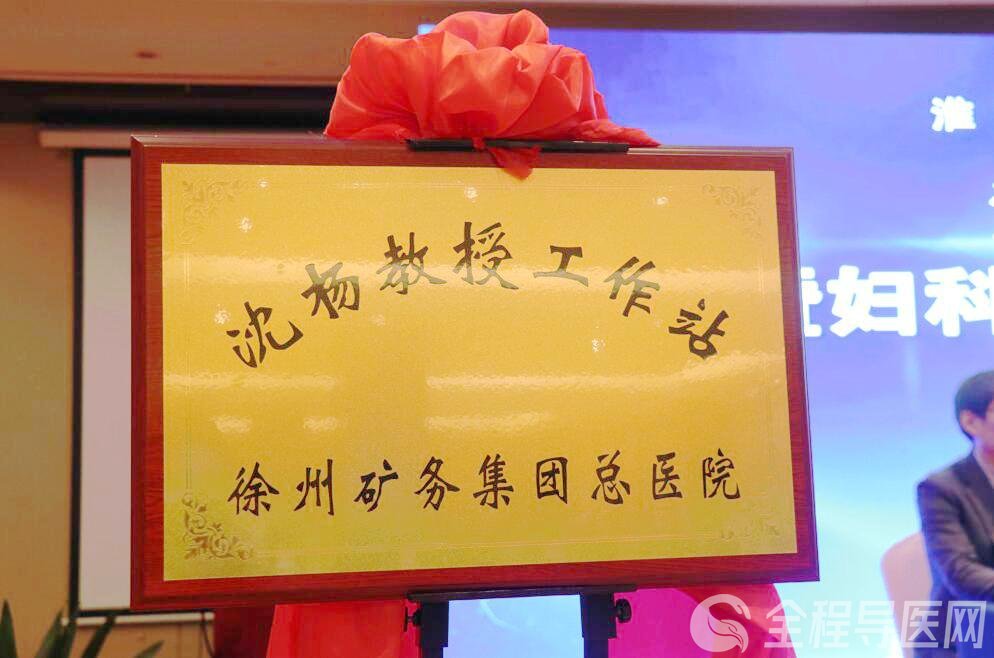 沈杨教授工作站
徐州矿务集团总医院
淮
暨妇科
全程导医网